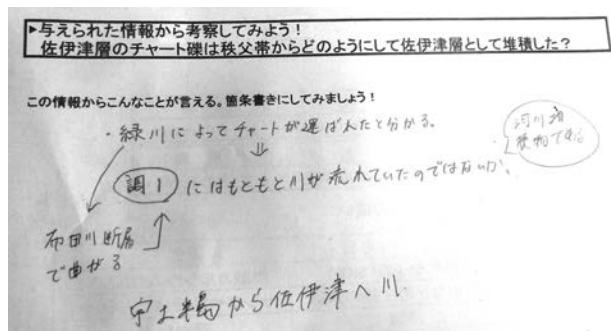 ▶与えられた情報から考察してみよう！
佐伊津層のチャート礫は秩父帯からどのようにして佐伊津層として堆積した？
この情報からこんなことが言える。箇条書きにしてみましょう！
・緑川によってチャートが運ばれたと分かる。
調1 にはもともと川が流れていたのではないか。
布田川断層
で曲がる
宇土半島から佐伊津へ川